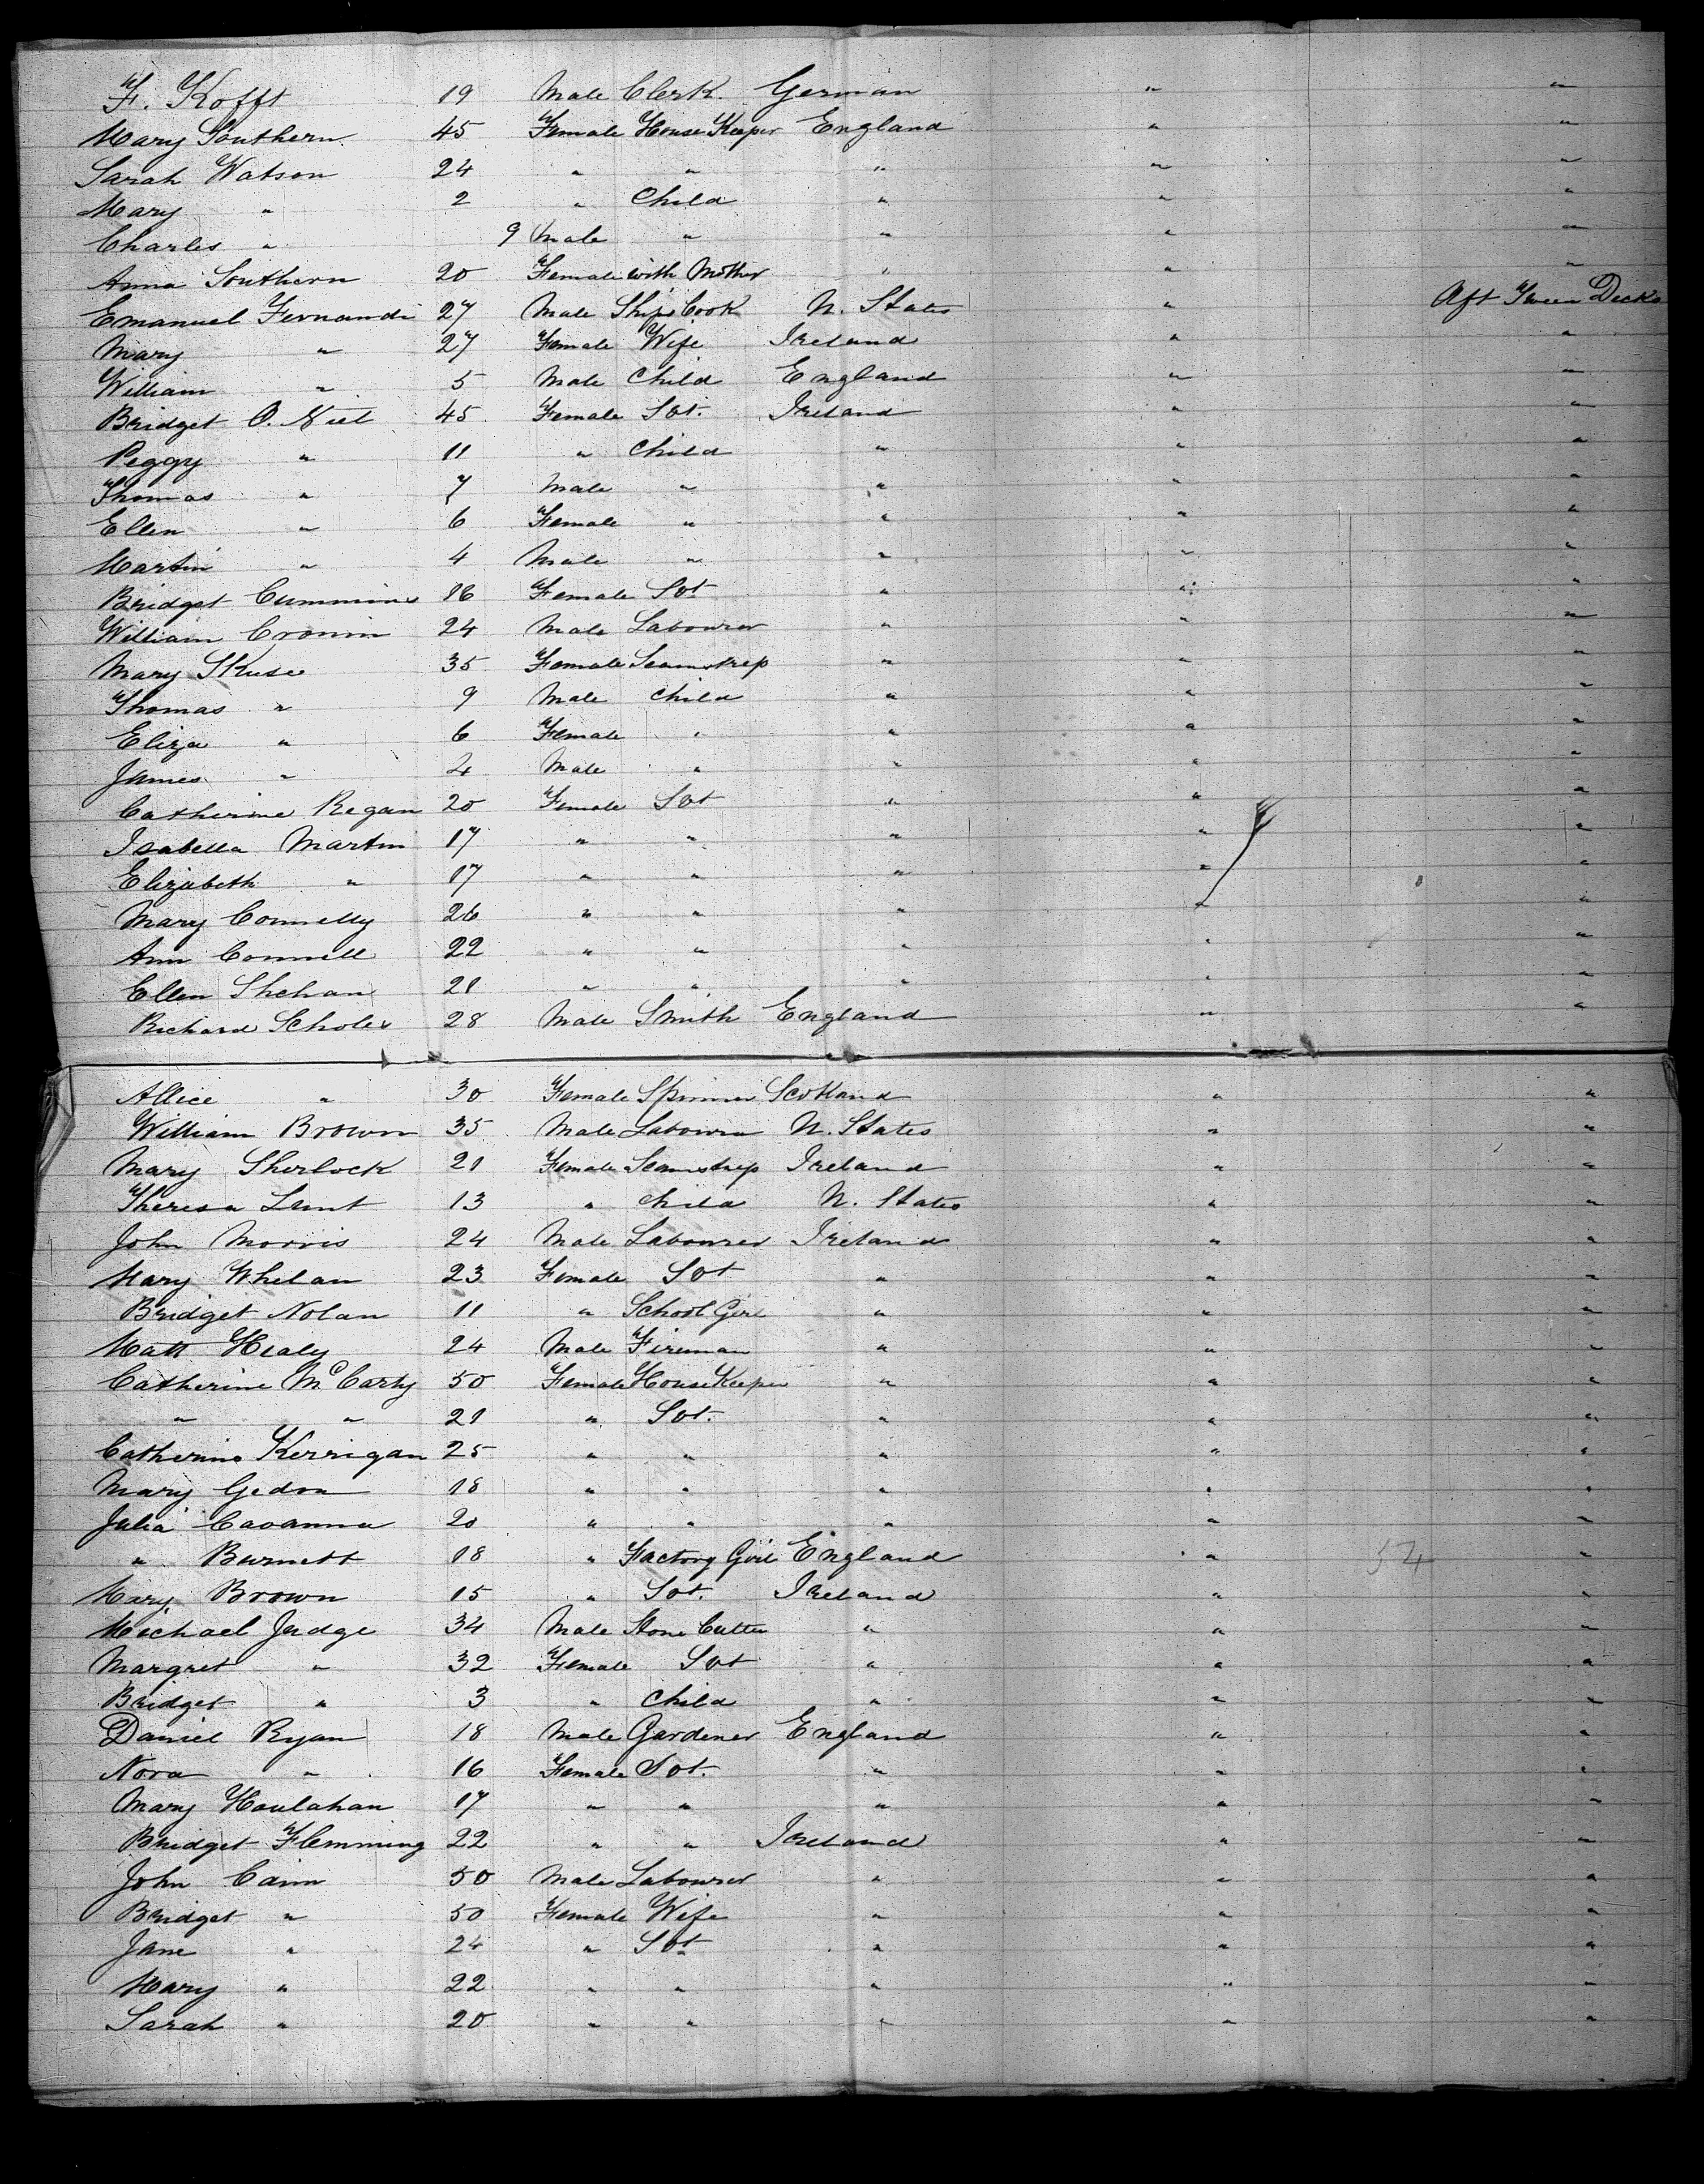 F. Kofft 19 Male Clerk German " "
Mary Southern 45 Female House Keeper England " "
Sarah Watson 24 " " " " "
Mary " 2 " Child " " "
Charles " 9 Male " " " "
Anna Southern 20 Female with Mother " " "
Emanuel Fernandi 27 Male Ships Cook U. States " Aft Tween Decks
Mary " 27 Female Wife Ireland " "
William " 5 Male Child England " "
Bridget O. Niel 45 Female Svt. Ireland " "
Peggy " 11 " Child " " "
Thomas " 7 Male " " " "
Ellen " 6 Female " " " "
Martin " 4 Male " " " "
Bridget Cummins 16 Female Svt " " "
William Cronin 24 Male Labourer " " "
Mary Skuse 35 Female Seamstress " " "
Thomas " 9 Male Child " " "
Eliza " 6 Female " " " "
James " 4 Male " " " "
Catherine Regan 20 Female Svt " " "
Isabella Martin 17 " " " " "
Elizabeth " 17 " " " " "
Mary Connelly 26 " " " " "
Ann Connell 22 " " " " "
Ellen Shehan 21 " " " " "
Richard Scholes 28 Male Smith England " "
Allice " 30 Female Spinner Scotland " "
William Brown 35 Male Labourer U. States " "
Mary Sherlock 21 Female Seamstress Ireland " "
Theresa Lunt 13 " Child U. States " "
John Morris 24 Male Labourer Ireland " "
Mary Whelan 23 Female Svt " " "
Bridget Nolan 11 " School Girl " " "
Matt Healy 24 Male Fireman " " "
Catherine McCarty 50 Female House Keeper " " "
" " 21 " Svt. " " "
Catherine Kerrigan 25 " " " " "
Mary Gedon 18 " " " " "
Julia Cavanna 20 " " " " "
" Burnett 18 " Factory Girl England " 54 "
Mary Brown 15 " Svt. Ireland " "
Michael Judge 34 Male Stone Cutter " " "
Margret " 32 Female Svt " " "
Bridget " 3 " Child " " "
Daniel Ryan 18 Male Gardener England " "
Nora " 16 Female Svt. " " "
Mary Houlahan 17 " " " " "
Bridget Flemming 22 " " Ireland " "
John Cainn 50 Male Labourer " " "
Bridget " 50 Female Wife " " "
Jane " 24 " Svt " " "
Mary " 22 " " " " "
Sarah " 20 " " " " "